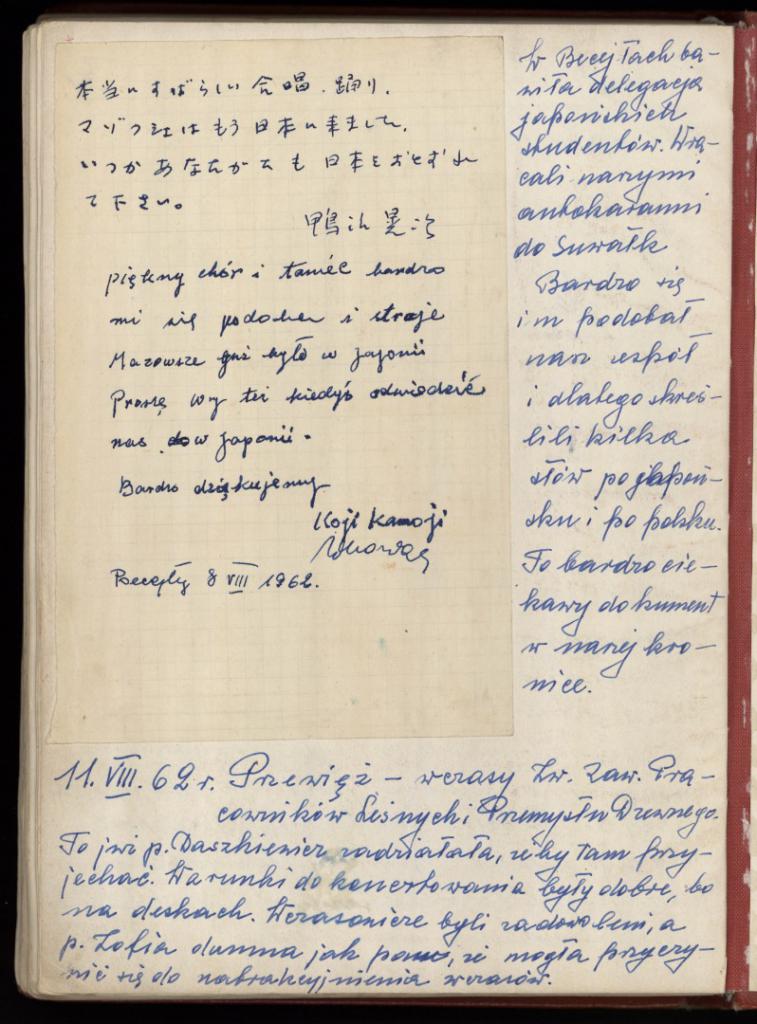 本当にすばらしい合唱、踊り、
マゾフシェはもう日本に来ました。
いつかあなたがたも日本をおとずれ
て下さい。
鴨治晃次
piękny chór i taniec bardzo
mi się podoba i stroje
Mazowsze już było w Japonii
Proszę wy też kiedyś odwiedzić
nas w Japonii.
Bardzo dziękujemy
Koji Kamoji
Becejły 8 VIII 1962.
W Becejłach ba-
wiła delegacja
japońskich
studentów. Wra-
cali naszymi
autokarami
do Suwałk
Bardzo się
im podobał
nasz zespół
i dlatego skreś-
lili kilka
słów po japoń-
sku i po polsku.
To bardzo cie-
kawy dokument
w naszej kro-
nice.
11. VIII. 62 r. Przewięź – wczasy Zw. Zaw. Pra-
cowników Leśnych i Przemysłu Drzewnego.
To już p. Daszkiewicz zadziałała, żeby tam przy-
jechać. Warunki do koncertowania były dobre, bo
na deskach. Wczasowicze byli zadowoleni, a
p. Zofia dumna jak paw, że mogła przyczy-
nić się do uatrakcyjnienia wczasów.